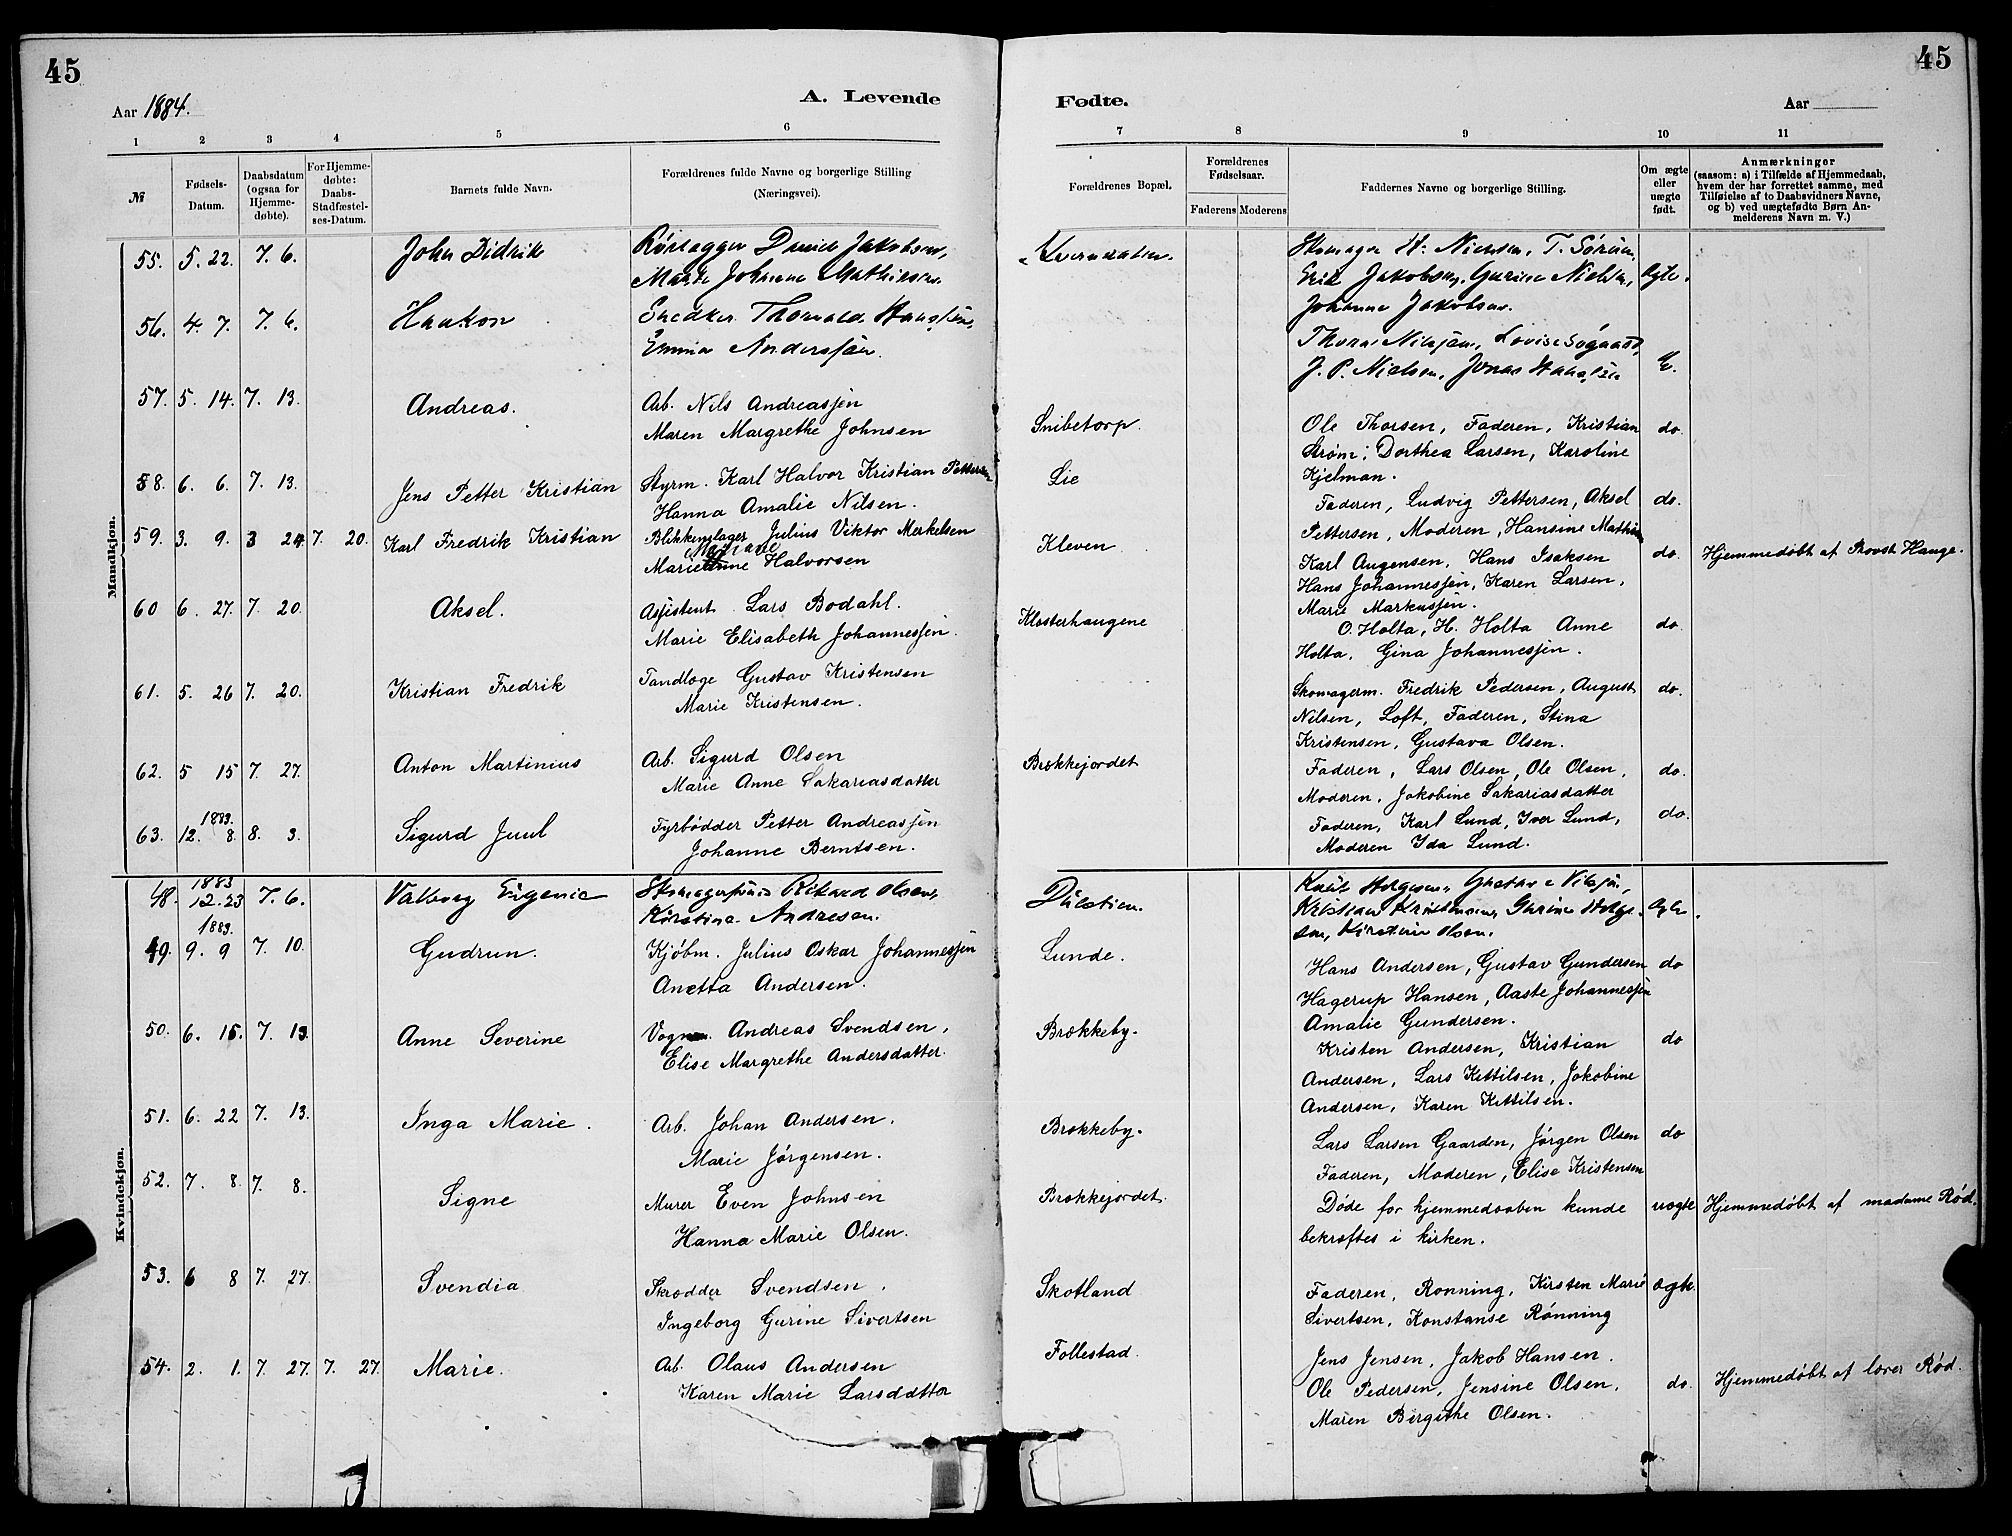 45
45
Aar 1884.
A. Levende
Fødte.
Aar
1 2 3 4 5 6 7 8 9 10 11
№
Fødsels-Datum.
Daabsdatum (ogsaa for Hjemme-døbte).
For Hjemme-døbte: Daabs-Stadfæstel-ses-Datum.
Barnets fulde Navn.
Forældrenes fulde Navne og borgerlige Stilling (Næringsvei).
Forældrenes Bopæl.
Forældrenes Fødselsaar.
Faderens Moderens
Faddernes Navne og borgerlige Stilling.
Om ægte eller uægte født.
Anmærkninger
(saasom: a) i Tilfælde af Hjemmedaab,
hvem der har forrettet samme, med
Tilføielse af to Daabsvidners Navne,
og b) ved uægtefødte Børn An-
melderens Navn m. V.)
Mandkjøn.
55. 5. 22. 7. 6. John Didrik
Jakobsen,
Johanne Mathisen
H. Nielsen, T.
Jakobsen, Gurine Nielsen,
Johanne Jakobsen.
Ægte.
56. 4. 7. 7. 6. Haakon
Snedker Thorvald Hansen,
Emma Anderssen.
Nilssen, Lovise Søgaard,
J. P. Nielsen, Jonas Hansen
57. 5. 14. 7. 13. Andreas.
Arb. Nils Andreassen
Maren Margrethe Johnsen
Snibetorp.
Ole Thorsen, Faderen, Kristian
Strøm, Dorthea Larsen, Karoline
Kjelman.
do.
58. 6. 6. 7. 13. Jens Petter Kristian
Styrm. Karl Halvor Kristian Pettersen
Hanna Amalie Nilsen.
Lie
Faderen, Ludvig Pettersen, Aksel
Pettersen, Moderen, Hansine
do.
59. 3. 9. 3 24 7. 20. Karl Fredrik Kristian
Blikkenslager Julius Viktor Merkelsen
Halvorsen
Kleven
Karl Augensen, Hans Isaksen
Hans Johannessen, Karen Larsen,
Marie Markussen.
do.
Hjemmedøbt af Provst Hauge.
60 6. 27. 7. 20. Aksel.
Assistent Lars Bodahl.
Marie Elisabeth Johannessen.
Klosterhaugene
O. Holta, H. Holta Anne
Holta, Gina Johannessen.
do.
61. 5. 26 7. 20. Kristian Fredrik
Tandlæge Gustav Kristensen
Marie Kristensen.
Skomagerm. Fredrik Pedersen, August
Nilsen, Loft, Faderen, Stina
Kristensen, Gustava Olsen.
do.
62. 5 15 7. 27. Anton Martinius
Arb. Sigurd Olsen
Marie Anne Sakariasdatter
Brekkejordet
Faderen, Lars Olsen, Ole Olsen,
Moderen, Jakobine Sakariasdatter
do.
1883.
63. 12. 8 8. 3. Sigurd Juul
Fyrbødder Petter Andreassen
Johanne Berntsen.
Faderen, Karl Lund, Iver Lund,
Moderen Ida Lund.
do.
Kvindekjøn.
1883
48. 12. 23 7. 6. Valborg Eugenie
Rikard Olsen,
Kirstine Andresen.
Nilsen,
Kristian Kristensen, Gurine
Kirstine Olsen.
1883.
49. 9. 9 7. 10. Gudrun.
Kjøbm. Julius Oskar Johannessen
Anetta Andersen.
Lunde.
Hans Andersen, Gustav Gundersen
Hagerup Hansen, Aaste Johannessen
Amalie Gundersen.
do
50. 6. 15. 7. 13 Anne Severine
Andreas Svendsen,
Elise Margrethe Andersdatter.
Brekkeby.
Kristen Andersen, Kristian
Andersen, Lars Kittilsen, Jakobine
Andersen, Karen Kittilsen.
do
51. 6. 22 7. 13. Inga Marie.
Arb. Johan Andersen.
Marie Jørgensen.
Brekkeby.
Lars Larsen Gaarden, Jørgen Olsen
Faderen, Moderen, Elise Kristensen
do
52. 7. 8. 7. 8. Signe
Murer Even Johnsen
Hanna Marie Olsen.
Brekkejordet.
Døde før hjemmedaaben kunde
bekræftes i kirken.
uægte
Hjemmedøbt af madame Rød.
53. 6 8 7. 27. Svendia
Skrædder Svendsen.
Ingeborg Gurine Sivertsen
Skotland
Faderen, Rønning, Kirsten Marie
Sivertsen, Konstanse Rønning
ægte.
54. 2. 1. 7 27 7. 27. Marie.
Arb. Olaus Andersen
Karen Marie Larsdatter
Follestad.
Jens Jensen, Jakob Hansen.
Ole Pedersen, Jensine Olsen.
Maren Birgithe Olsen.
do.
Hjemmedøbt af lærer Rød.